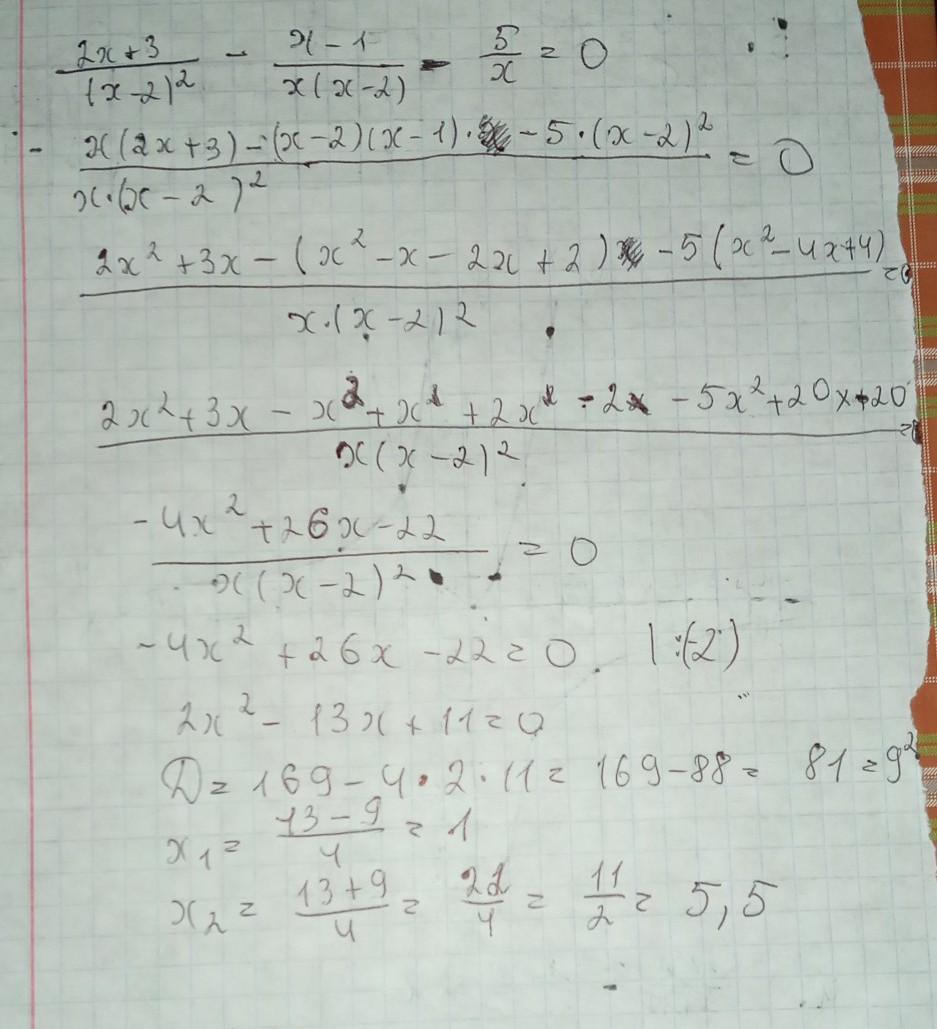 (2x+3)/(x-2)² - (x-1)/(x(x-2)) - 5/x = 0
- (x(2x+3) - (x-2)(x-1)· - 5·(x-2)²)/(x·(x-2)²) = 0
(2x²+3x-(x²-x-2x+2) - 5(x²-4x+4))/(x·(x-2)²) = 0
(2x²+3x - x² + x + 2x - 2 - 5x²+20x-20)/(x(x-2)²) = 0
(-4x²+26x-22)/(x(x-2)²) = 0
-4x²+26x-22=0. |:(-2)
2x²-13x+11=0
D=169-4·2·11=169-88= 81=9²
x₁= (13-9)/4 = 1
x₂= (13+9)/4 = 22/4 = 11/2 = 5,5